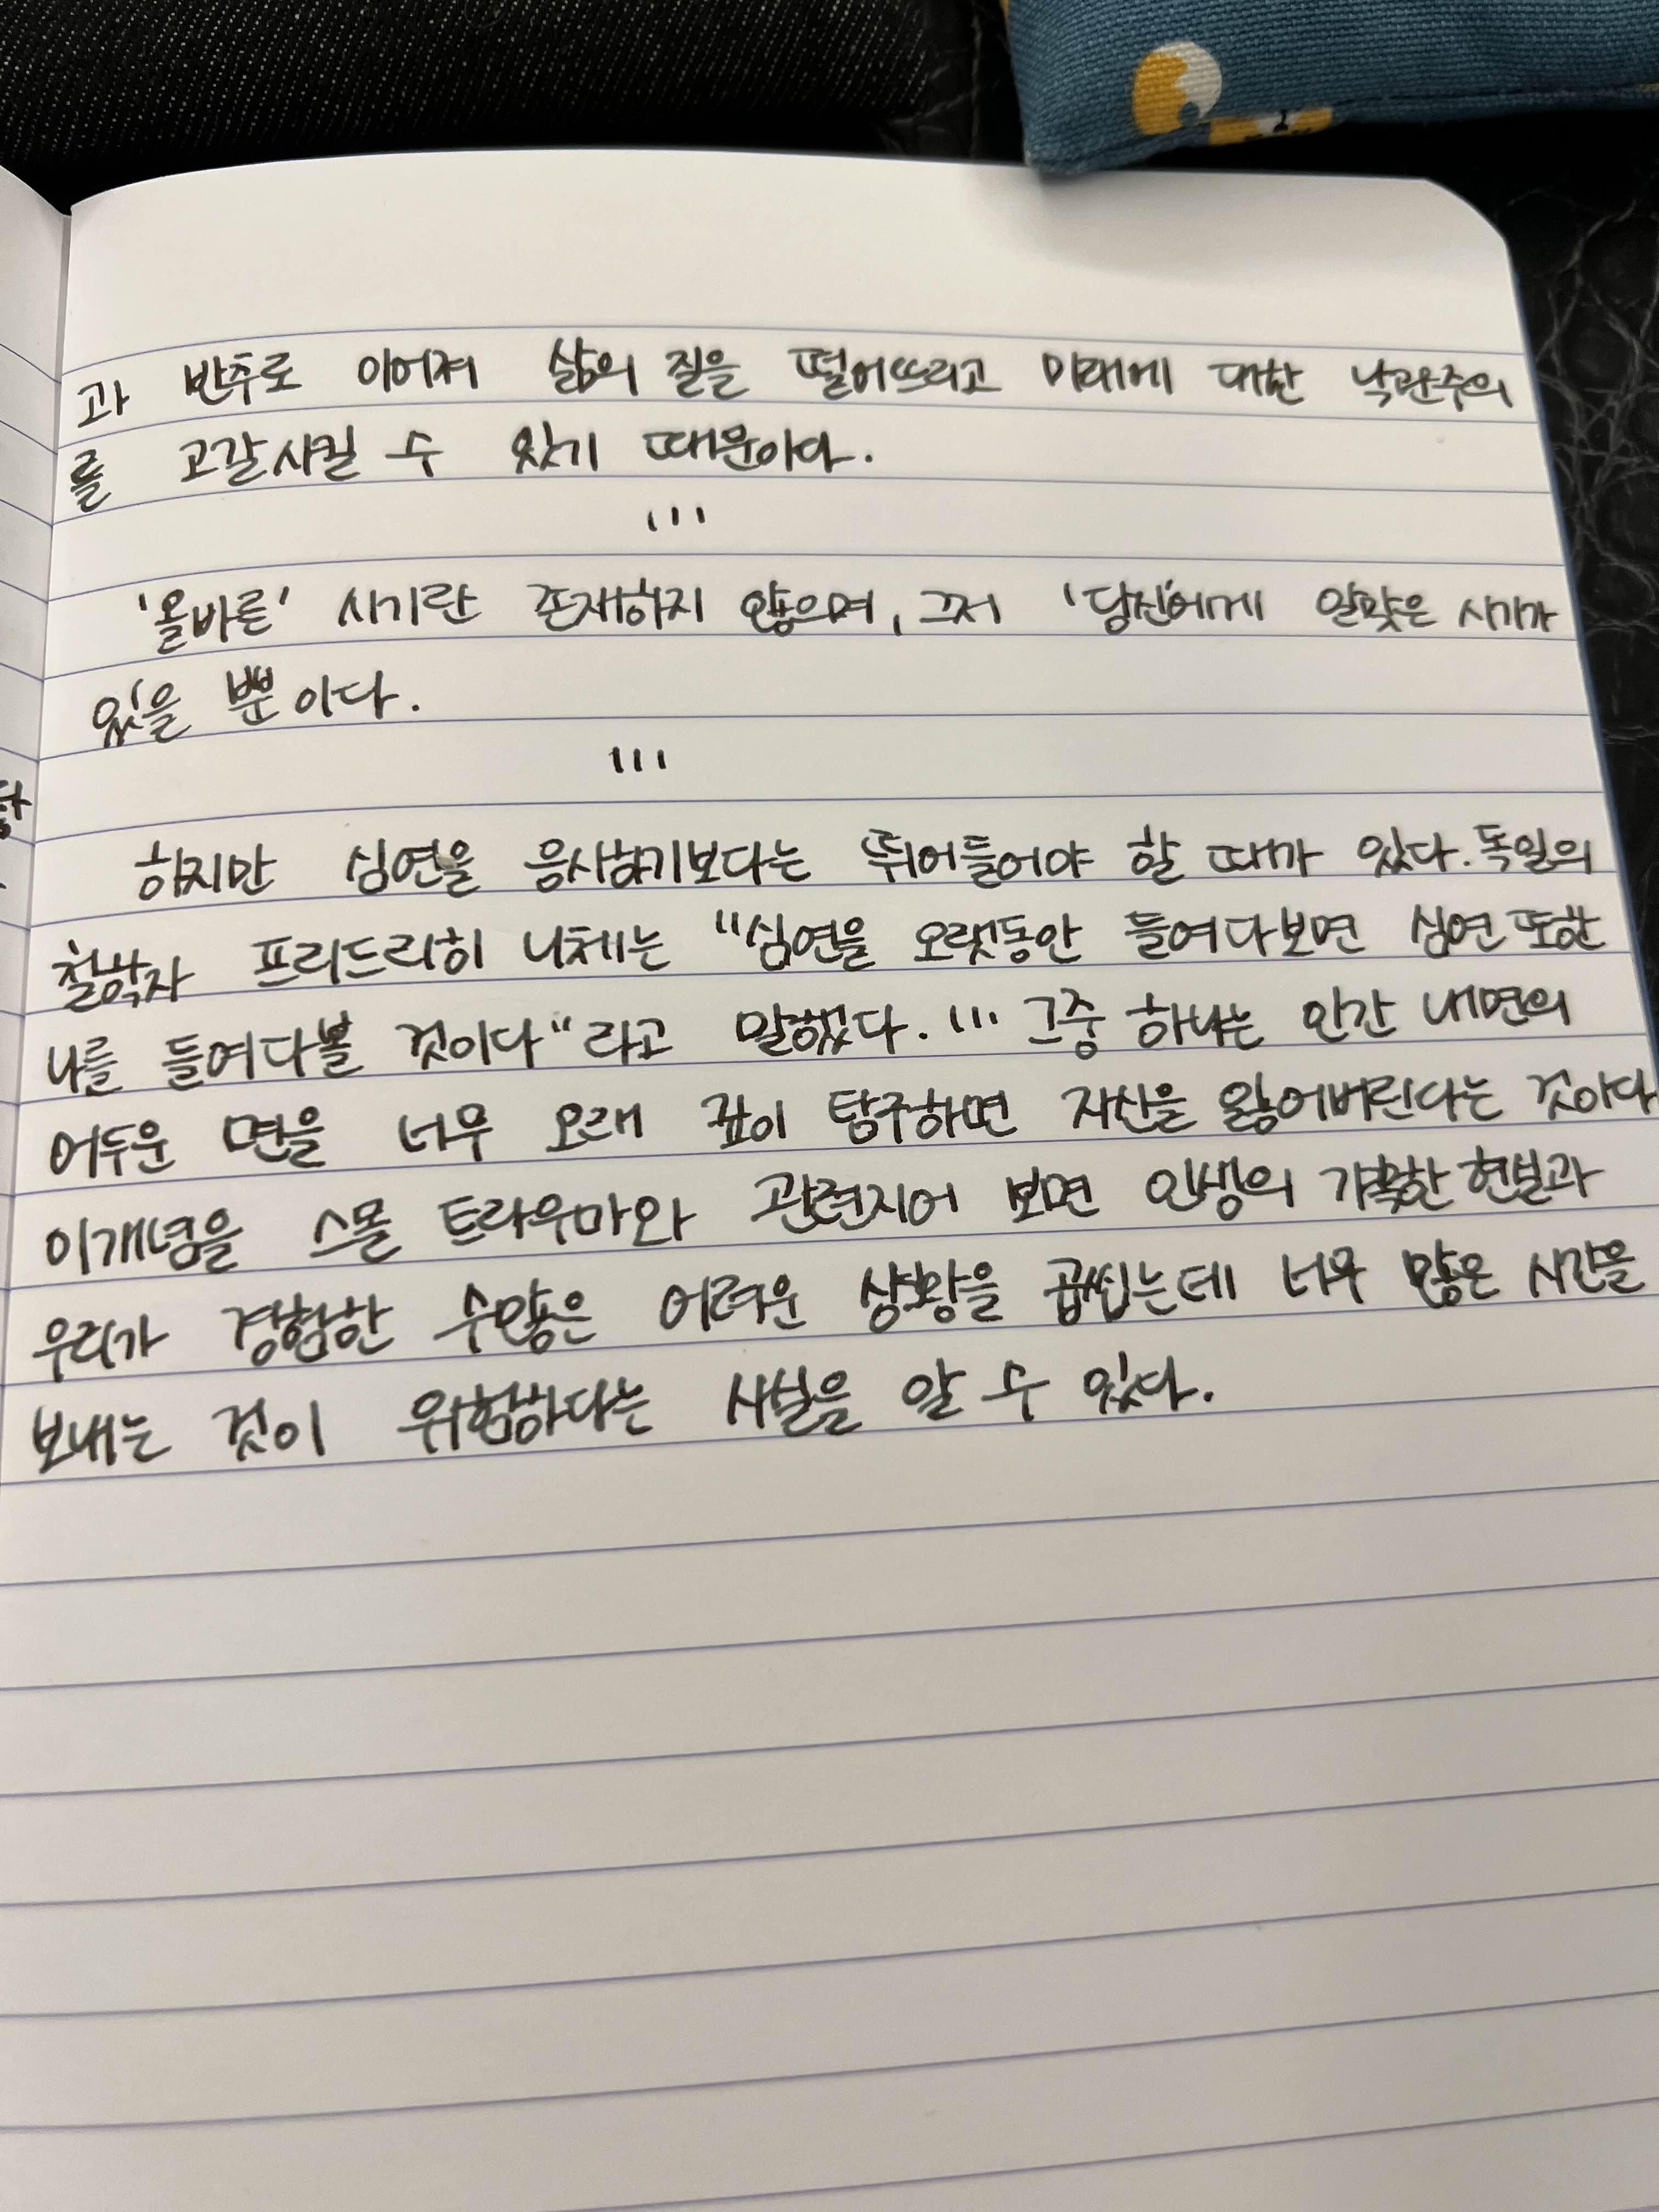 과 반추로 이어져 삶의 질을 떨어뜨리고 미래에 대한 낙관주의
를 고갈시킬 수 있기 때문이다.
...
'올바른' 시기란 존재하지 않으며, 그저 '당신'에게 알맞은 시기가
있을 뿐이다.
...
하지만 심연을 응시하기보다는 뛰어들어야 할 때가 있다. 독일의
철학자 프리드리히 니체는 "심연을 오랫동안 들여다보면 심연 또한
나를 들여다볼 것이다"라고 말했다. ... 그중 하나는 인간 내면의
어두운 면을 너무 오래 깊이 탐구하면 자신을 잃어버린다는 것이다
이개념을 스몰 트라우마와 관련지어 보면 인생의 가혹한 현실과
우리가 경험한 수많은 어려운 상황을 곱씹는데 너무 많은 시간을
보내는 것이 위험하다는 사실을 알 수 있다.